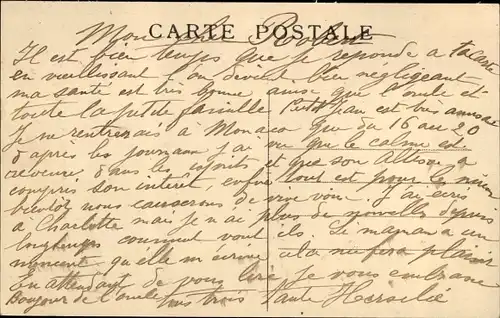 CARTE POSTALE
Mon cher Robert
Il est bien temps que je reponde a ta carte
en vieillissant on devient bien négligeant
ma santé est très bonne ainsi que l'oncle et
toute la petite famille Petit Jean est très amusant
Je ne rentrerais a Monaco que du 16 au 20
d'après les journaux j'ai vu que le calme est
revenue dans les esprits et que son Altesse a
compris son interêt, enfin tout est pour le mieux
bientôt nous causerons de vive voix. J'ai écris
a Charlotte mais je n'ai plus de nouvelles depuis
longtemps comment vont ils. Si maman a un
moment qu'elle m'écrive cela me fera plaisir
En attendant de vous lire je vous embrasse
Bonjour de l'oncle tous trois Tante Hersilie